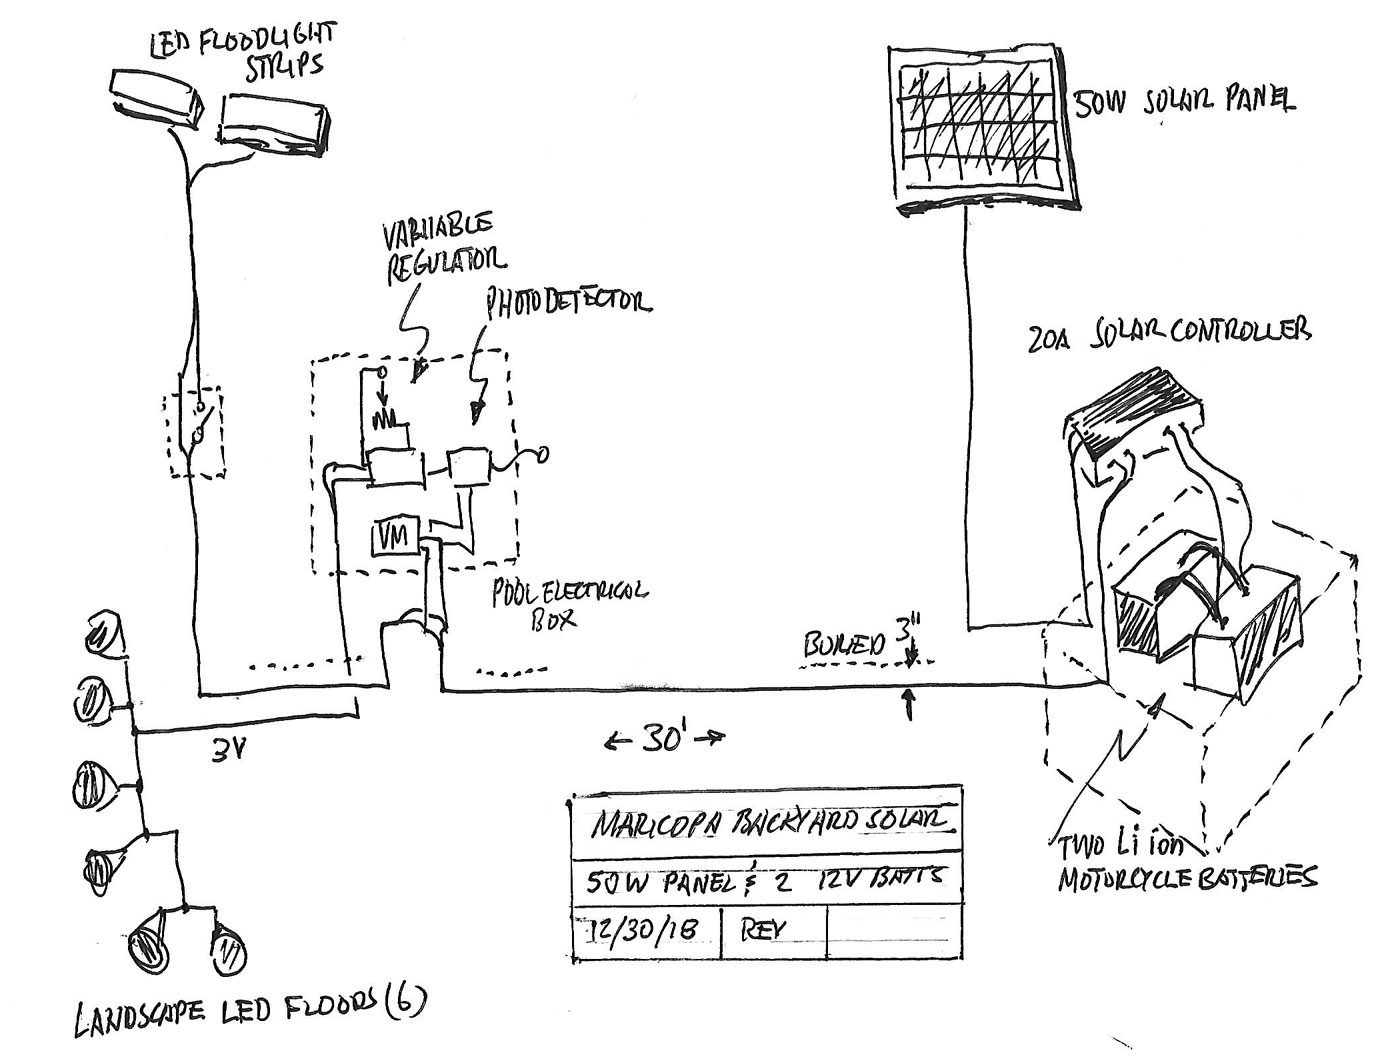 LED FLOODLIGHT
STRIPS
50W SOLAR PANEL
VARIIABLE
REGULATOR
PHOTODETECTOR
20A SOLAR CONTROLLER
VM
POOL ELECTRICAL
BOX
BURIED 3"
3V
← 30' →
MARICOPA BACKYARD SOLAR
50W PANEL & 2 12V BATTS
12/30/18 REV
TWO Li ion
MOTORCYCLE BATTERIES
LANDSCAPE LED FLOODS (6)